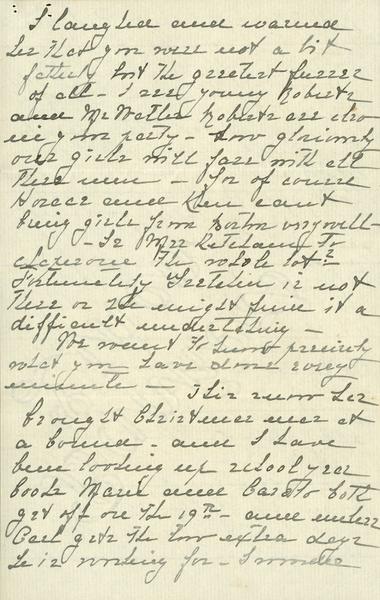 I laughed and warned
her that you were not a bit
fatherly but the greatest fusser
of all - I see young Roberts
and Mr Walter Roberts are also
in your party - How gloriously
our girls will fare with all
these men - for of course
Horace and Ken can't
bring girls from Boston very well
- Is Mrs Ketcham to
chaperone the whole lot?
Fortunately Gretchen is not
there or she might find it a
difficult undertaking -
We want to know precisely
what you have done every
minute -
This snow has
brought Christmas near at
a bound - and I have
been looking up school year
books Marie and both
get off on the 19th - and unless
Carl gets the two extra days
he is working for - I wonder